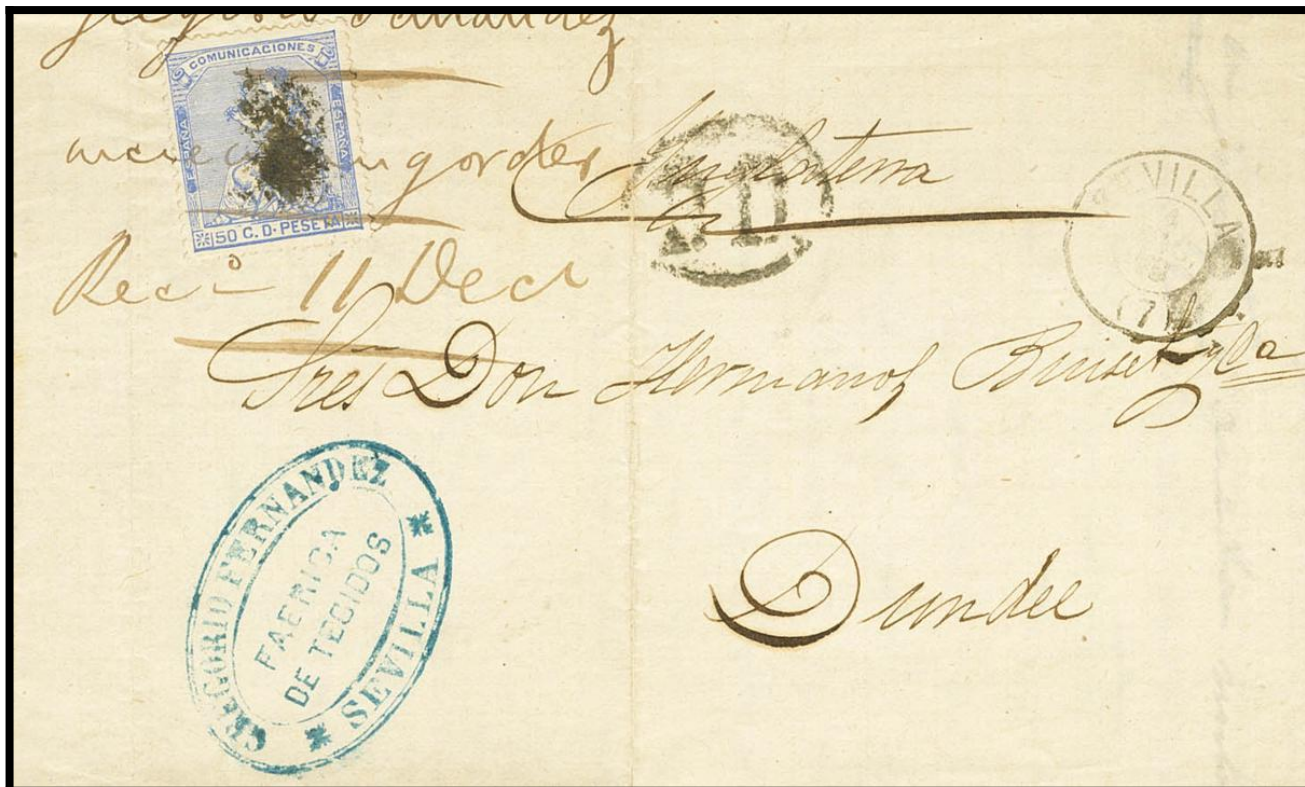 Gregorio Fernandez
COMUNICACIONES
ESPAÑA
ESPAÑA
50 C. D. PESETA
Inglaterra
P.D.
SEVILLA
(7)
Rec 11 Dec
Sres Don Hermanos Buiset y Ca
Dundee
GREGORIO FERNANDEZ
FABRICA
DE TEGIDOS
* SEVILLA *